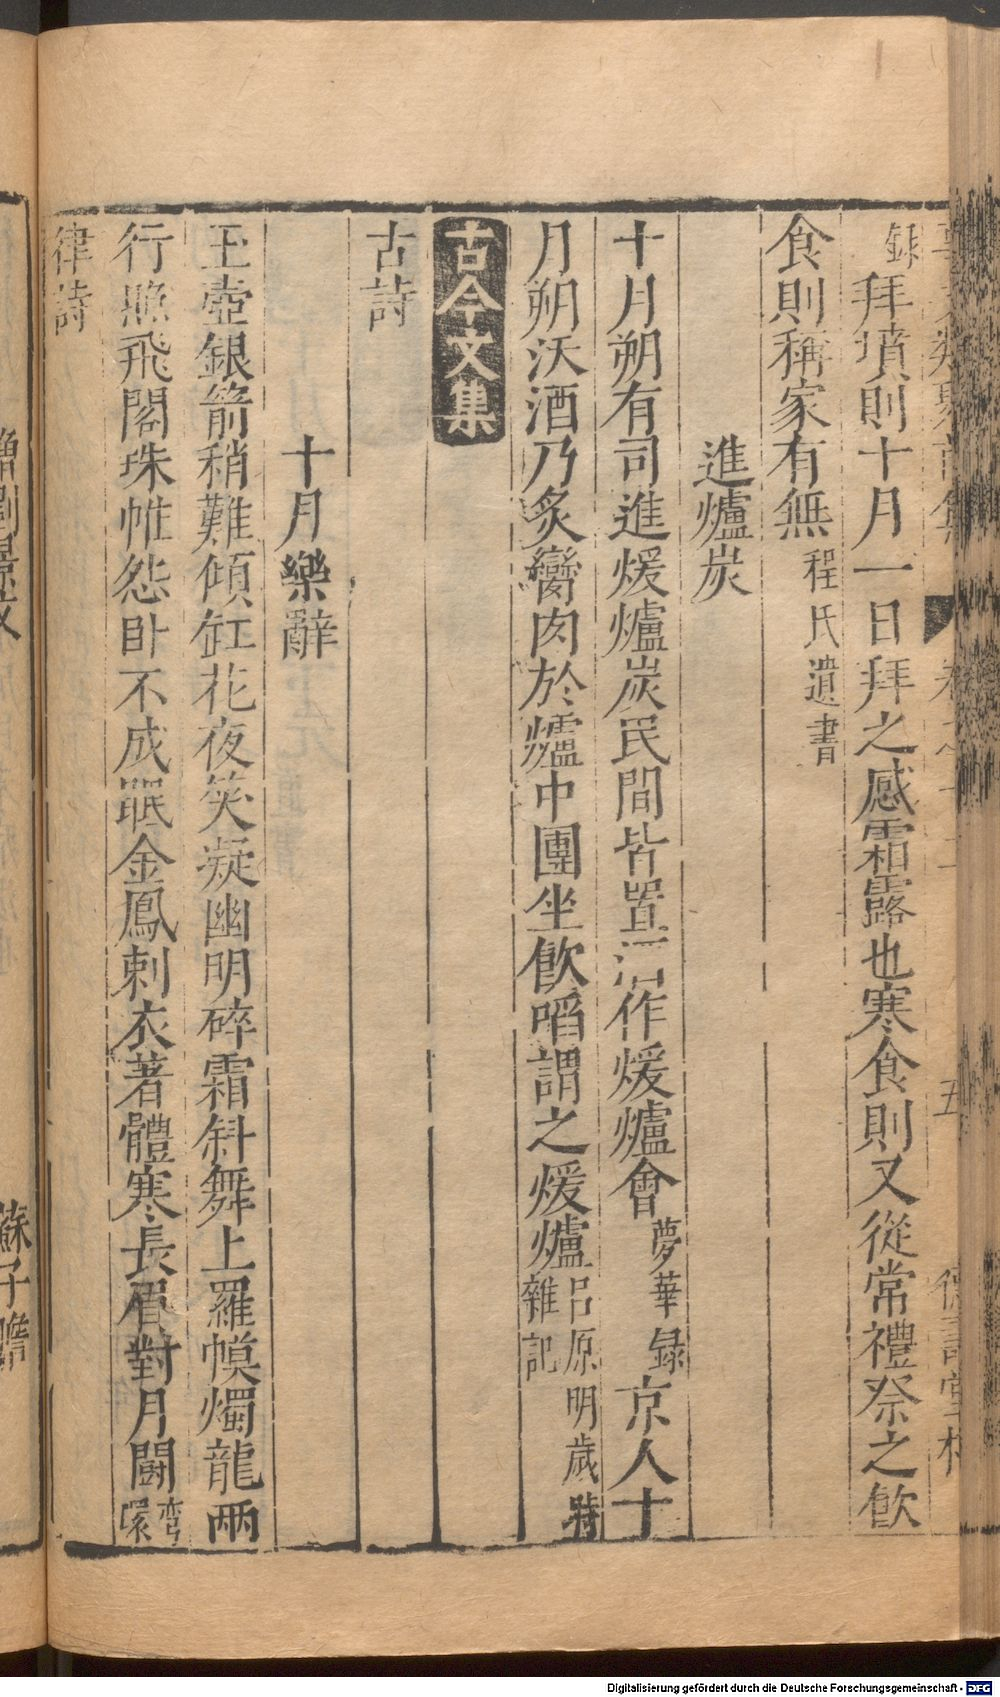 錄 拜墳則十月一日拜之感霜露也寒食則又從常禮祭之飮
食則稱家有無 程氏遺書
進爐炭
十月朔有司進煖爐炭民間皆置酒作煖爐會 夢華錄 京人十
月朔沃酒乃炙臠肉於爐中團坐飮啗謂之煖爐 呂原明歲時
雜記
古今文集
古詩
十月樂辭
玉壺銀箭稍難傾缸花夜笑凝幽明碎霜斜舞上羅幙燭龍兩
行照飛閣珠帷怨卧不成眠金鳳刺衣著體寒長眉對月鬬彎
環
律詩
蘇子瞻
Digitalisierung gefördert durch die Deutsche Forschungsgemeinschaft - DFG